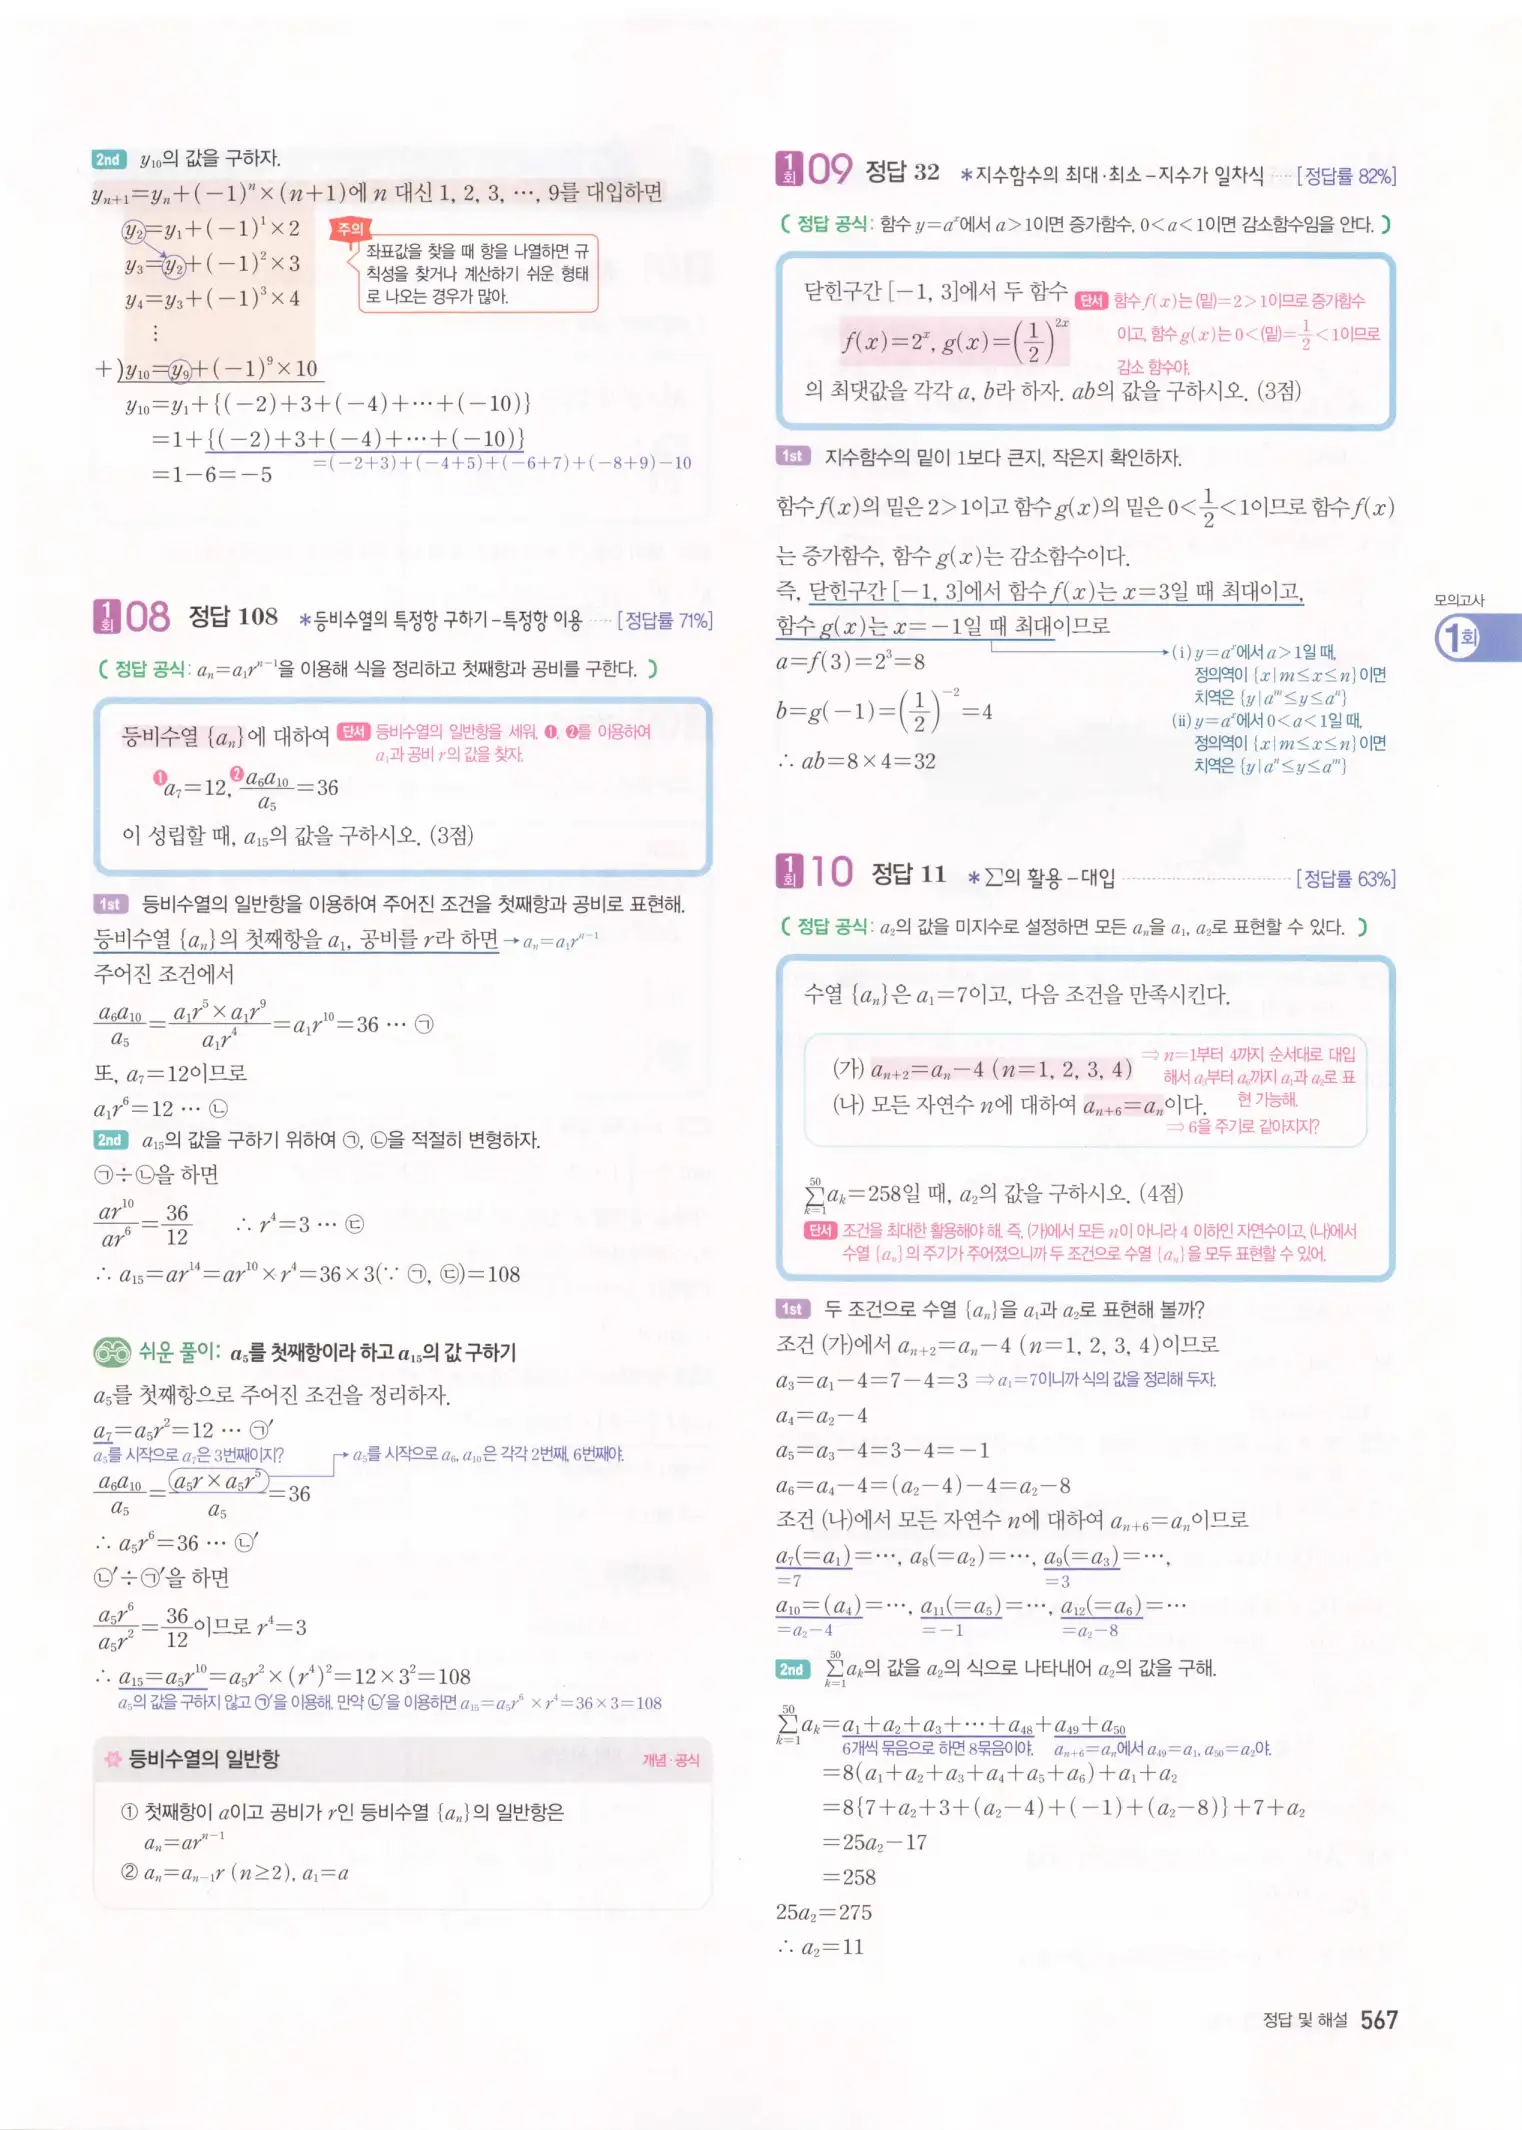 2nd y₁₀의 값을 구하자.
yₙ₊₁=yₙ+(−1)ⁿ×(n+1)에 n 대신 1, 2, 3, ⋯, 9를 대입하면
y₂=y₁+(−1)¹×2
y₃=y₂+(−1)²×3
y₄=y₃+(−1)³×4
⋮
+)y₁₀=y₉+(−1)⁹×10
주의
좌표값을 찾을 때 항을 나열하면 규
칙성을 찾거나 계산하기 쉬운 형태
로 나오는 경우가 많아.
y₁₀=y₁+{(−2)+3+(−4)+⋯+(−10)}
=1+{(−2)+3+(−4)+⋯+(−10)}
=(−2+3)+(−4+5)+(−6+7)+(−8+9)−10
=1−6=−5
1회 08 정답 108 *등비수열의 특정항 구하기-특정항 이용 ····· [정답률 71%]
( 정답 공식: aₙ=a₁rⁿ⁻¹을 이용해 식을 정리하고 첫째항과 공비를 구한다. )
등비수열 {aₙ}에 대하여 단서 등비수열의 일반항을 세워, ❶, ❷를 이용하여
a₁과 공비 r의 값을 찾자.
❶a₇=12, ❷a₆a₁₀/a₅=36
이 성립할 때, a₁₅의 값을 구하시오. (3점)
1st 등비수열의 일반항을 이용하여 주어진 조건을 첫째항과 공비로 표현해.
등비수열 {aₙ}의 첫째항을 a₁, 공비를 r라 하면 → aₙ=a₁rⁿ⁻¹
주어진 조건에서
a₆a₁₀/a₅=(a₁r⁵×a₁r⁹)/(a₁r⁴)=a₁r¹⁰=36 ⋯ ㉠
또, a₇=12이므로
a₁r⁶=12 ⋯ ㉡
2nd a₁₅의 값을 구하기 위하여 ㉠, ㉡을 적절히 변형하자.
㉠÷㉡을 하면
ar¹⁰/ar⁶=36/12 ∴ r⁴=3 ⋯ ㉢
∴ a₁₅=ar¹⁴=ar¹⁰×r⁴=36×3(∵ ㉠, ㉢)=108
쉬운 풀이: a₅를 첫째항이라 하고 a₁₅의 값 구하기
a₅를 첫째항으로 주어진 조건을 정리하자.
a₇=a₅r²=12 ⋯ ㉠′
a₅를 시작으로 a₇은 3번째이지? → a₅를 시작으로 a₆, a₁₀은 각각 2번째, 6번째야.
a₆a₁₀/a₅=(a₅r×a₅r⁵)/a₅=36
∴ a₅r⁶=36 ⋯ ㉡′
㉡′÷㉠′을 하면
a₅r⁶/a₅r²=36/12이므로 r⁴=3
∴ a₁₅=a₅r¹⁰=a₅r²×(r⁴)²=12×3²=108
a₅의 값을 구하지 않고 ㉠′을 이용해. 만약 ㉡′을 이용하면 a₁₅=a₅r⁶×r⁴=36×3=108
등비수열의 일반항 개념·공식
① 첫째항이 a이고 공비가 r인 등비수열 {aₙ}의 일반항은
aₙ=arⁿ⁻¹
② aₙ=aₙ₋₁r (n≥2), a₁=a
1회 09 정답 32 *지수함수의 최대·최소-지수가 일차식 ····· [정답률 82%]
( 정답 공식: 함수 y=aˣ에서 a>1이면 증가함수, 0<a<1이면 감소함수임을 안다. )
닫힌구간 [−1, 3]에서 두 함수
f(x)=2ˣ, g(x)=(1/2)²ˣ
단서 함수 f(x)는 (밑)=2>1이므로 증가함수
이고, 함수 g(x)는 0<(밑)=1/2<1이므로
감소 함수야.
의 최댓값을 각각 a, b라 하자. ab의 값을 구하시오. (3점)
1st 지수함수의 밑이 1보다 큰지, 작은지 확인하자.
함수 f(x)의 밑은 2>1이고 함수 g(x)의 밑은 0<1/2<1이므로 함수 f(x)
는 증가함수, 함수 g(x)는 감소함수이다.
즉, 닫힌구간 [−1, 3]에서 함수 f(x)는 x=3일 때 최대이고,
함수 g(x)는 x=−1일 때 최대이므로
a=f(3)=2³=8
b=g(−1)=(1/2)⁻²=4
∴ ab=8×4=32
→ (ⅰ) y=aˣ에서 a>1일 때,
정의역이 {x|m≤x≤n}이면
치역은 {y|aᵐ≤y≤aⁿ}
(ⅱ) y=aˣ에서 0<a<1일 때,
정의역이 {x|m≤x≤n}이면
치역은 {y|aⁿ≤y≤aᵐ}
모의고사
1회
1회 10 정답 11 *∑의 활용-대입 ····· [정답률 63%]
( 정답 공식: a₂의 값을 미지수로 설정하면 모든 aₙ을 a₁, a₂로 표현할 수 있다. )
수열 {aₙ}은 a₁=7이고, 다음 조건을 만족시킨다.
(가) aₙ₊₂=aₙ−4 (n=1, 2, 3, 4)
⇒ n=1부터 4까지 순서대로 대입
해서 a₃부터 a₆까지 a₁과 a₂로 표
현 가능해.
(나) 모든 자연수 n에 대하여 aₙ₊₆=aₙ이다.
⇒ 6을 주기로 같아지지?
∑(k=1→50) aₖ=258일 때, a₂의 값을 구하시오. (4점)
단서 조건을 최대한 활용해야 해. 즉, (가)에서 모든 n이 아니라 4 이하인 자연수이고, (나)에서
수열 {aₙ}의 주기가 주어졌으니까 두 조건으로 수열 {aₙ}을 모두 표현할 수 있어.
1st 두 조건으로 수열 {aₙ}을 a₁과 a₂로 표현해 볼까?
조건 (가)에서 aₙ₊₂=aₙ−4 (n=1, 2, 3, 4)이므로
a₃=a₁−4=7−4=3 ⇒ a₁=7이니까 식의 값을 정리해 두자.
a₄=a₂−4
a₅=a₃−4=3−4=−1
a₆=a₄−4=(a₂−4)−4=a₂−8
조건 (나)에서 모든 자연수 n에 대하여 aₙ₊₆=aₙ이므로
a₇(=a₁)=⋯, a₈(=a₂)=⋯, a₉(=a₃)=⋯,
=7 =3
a₁₀=(a₄)=⋯, a₁₁(=a₅)=⋯, a₁₂(=a₆)=⋯
=a₂−4 =−1 =a₂−8
2nd ∑(k=1→50) aₖ의 값을 a₂의 식으로 나타내어 a₂의 값을 구해.
∑(k=1→50) aₖ=a₁+a₂+a₃+⋯+a₄₈+a₄₉+a₅₀
6개씩 묶음으로 하면 8묶음이야. aₙ₊₆=aₙ에서 a₄₉=a₁, a₅₀=a₂야.
=8(a₁+a₂+a₃+a₄+a₅+a₆)+a₁+a₂
=8{7+a₂+3+(a₂−4)+(−1)+(a₂−8)}+7+a₂
=25a₂−17
=258
25a₂=275
∴ a₂=11
정답 및 해설 567